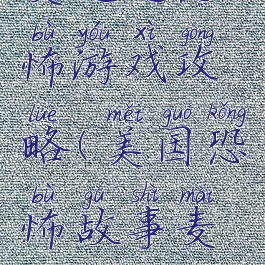 bù yóu xì gōng
怖游戏攻
lüè měi guó kǒng
略(美国恐
bù gù shì mài
怖故事麦